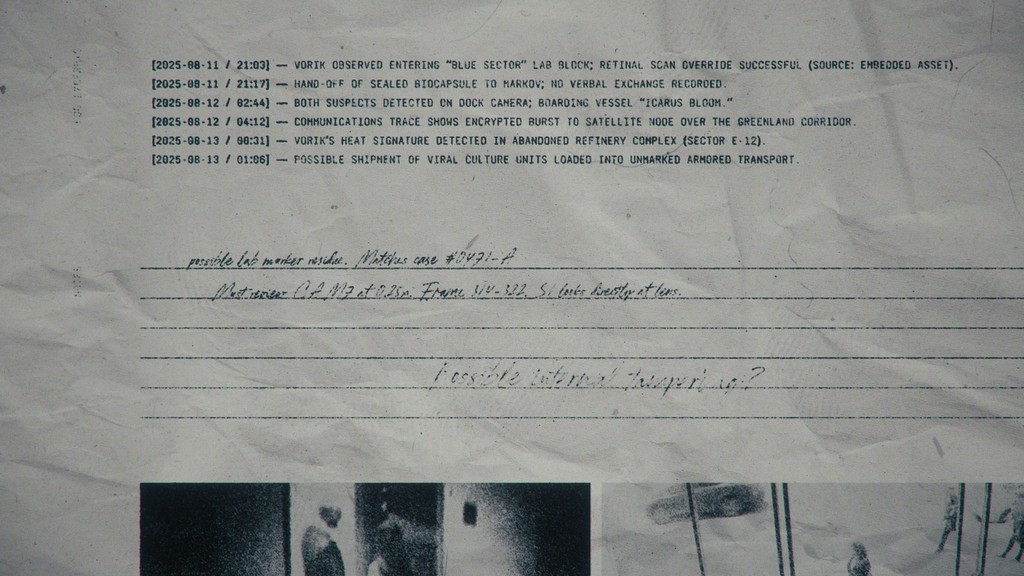 [2025-08-11 / 21:03] — VORIK OBSERVED ENTERING "BLUE SECTOR" LAB BLOCK; RETINAL SCAN OVERRIDE SUCCESSFUL (SOURCE: EMBEDDED ASSET).
[2025-08-11 / 21:17] — HAND-OFF OF SEALED BIOCAPSULE TO MARKOV; NO VERBAL EXCHANGE RECORDED.
[2025-08-12 / 02:44] — BOTH SUSPECTS DETECTED ON DOCK CAMERA; BOARDING VESSEL "ICARUS BLOOM."
[2025-08-12 / 04:12] — COMMUNICATIONS TRACE SHOWS ENCRYPTED BURST TO SATELLITE NODE OVER THE GREENLAND CORRIDOR.
[2025-08-13 / 00:31] — VORIK'S HEAT SIGNATURE DETECTED IN ABANDONED REFINERY COMPLEX (SECTOR E-12).
[2025-08-13 / 01:06] — POSSIBLE SHIPMENT OF VIRAL CULTURE UNITS LOADED INTO UNMARKED ARMORED TRANSPORT.
possible lab marker residue. Matches case #0471-A
Must review at 0.25x. Frame looks directly at lens.
Possible internal tampering?